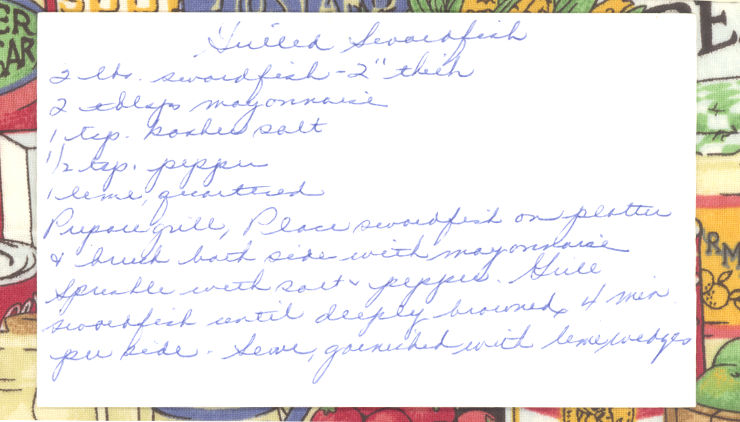 CR
SAR
MUSTARD
E
RM
Grilled Swordfish
2 lbs. swordfish - 2" thick
2 tblsps mayonnaise
1 tsp. kosher salt
1/2 tsp. pepper
1 lime, quartered
Prepare grill, Place swordfish on platter
& brush both side with mayonnaise
Sprinkle with salt & pepper. Grill
swordfish until deeply browned, 4 min
per side. Serve, garnished with lime wedges